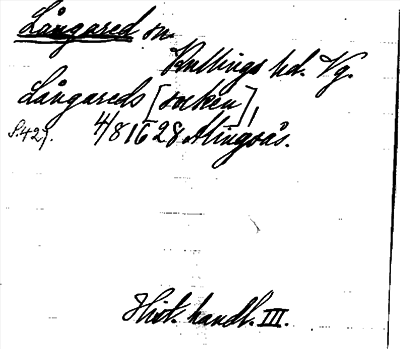 Långared sn.
Kullings hd. Vg.
Långareds [socken],
S.427. 4/8 1628 Alingsås.
Hist. handl. III.